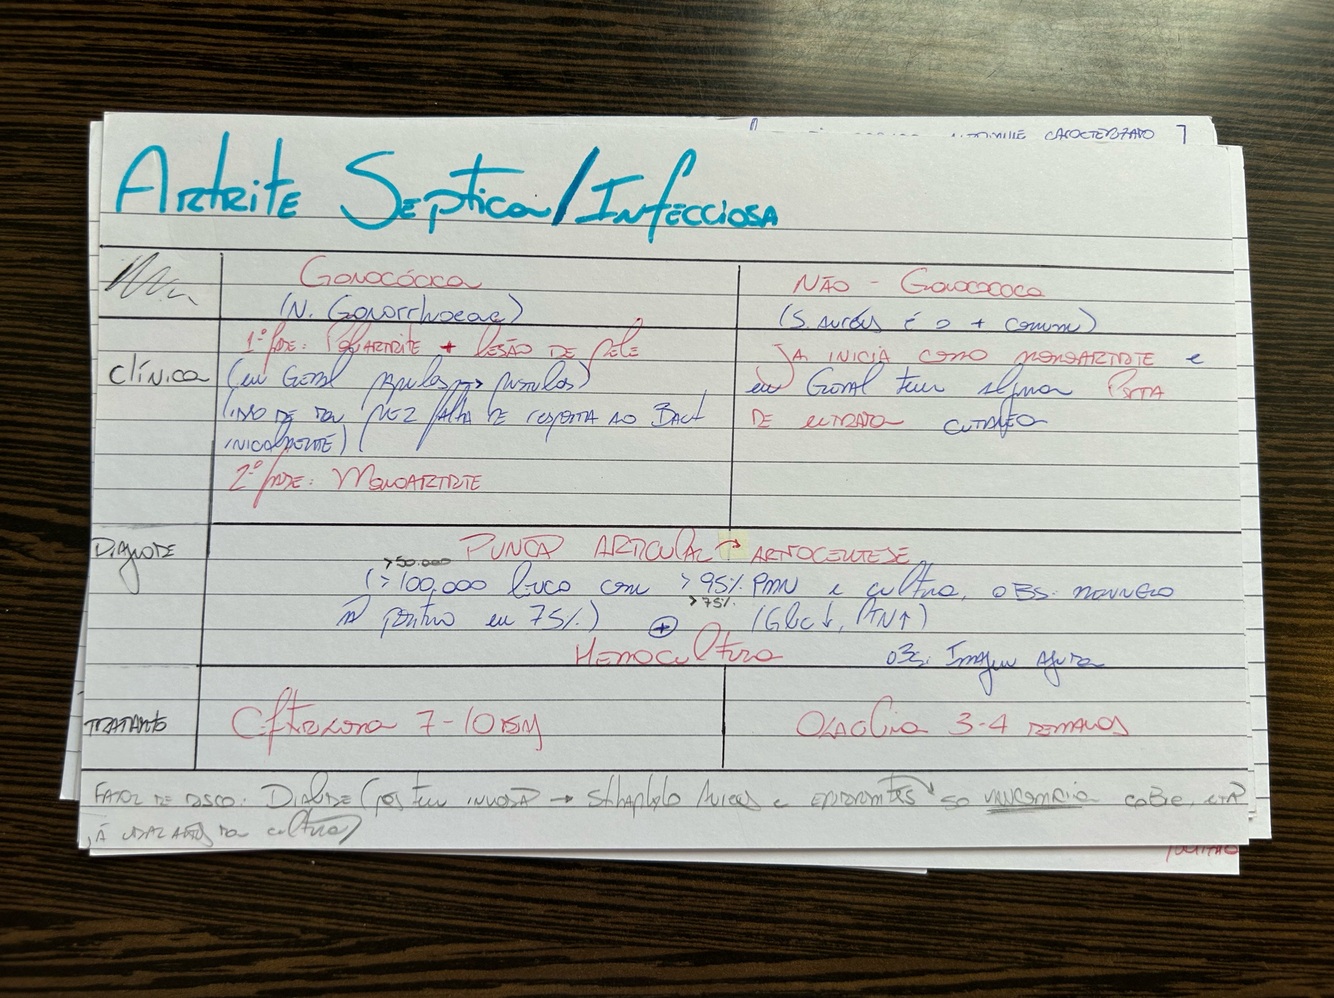 CARACTERIZADO
Artrite Séptica/Infecciosa
Gonocócica
NÃO - Gonococica
(N. Gonorrhoeae)
(S. aureus é o + comum)
Clínica
1ª fase: Poliartrite + Lesão de pele
(em Geral papulas → pustulas)
(isso se deu pela falta de resposta ao Bact
inicialmente)
2ª fase: Monoartrite
Já inicia como monoartrite e
em Geral tem alguma Porta
de entrada cutânea
PUNÇÃO ARTICULAR → ARTROCENTESE
>50.000
(>100.000 leuco com >95% PMN e cultura, OBS:
>75%
positivo em 75%) (Glic ↓, PTN↑)
+
Hemocultura
OBS: Imagem ajuda
Tratamento
Ceftriaxona 7-10 dias
Oxacilina 3-4 semanas
Fator de risco: Diálise (pos tem invasão → Sthaphylo Aureus e epidermites só vancomicina cobre,
cultura)